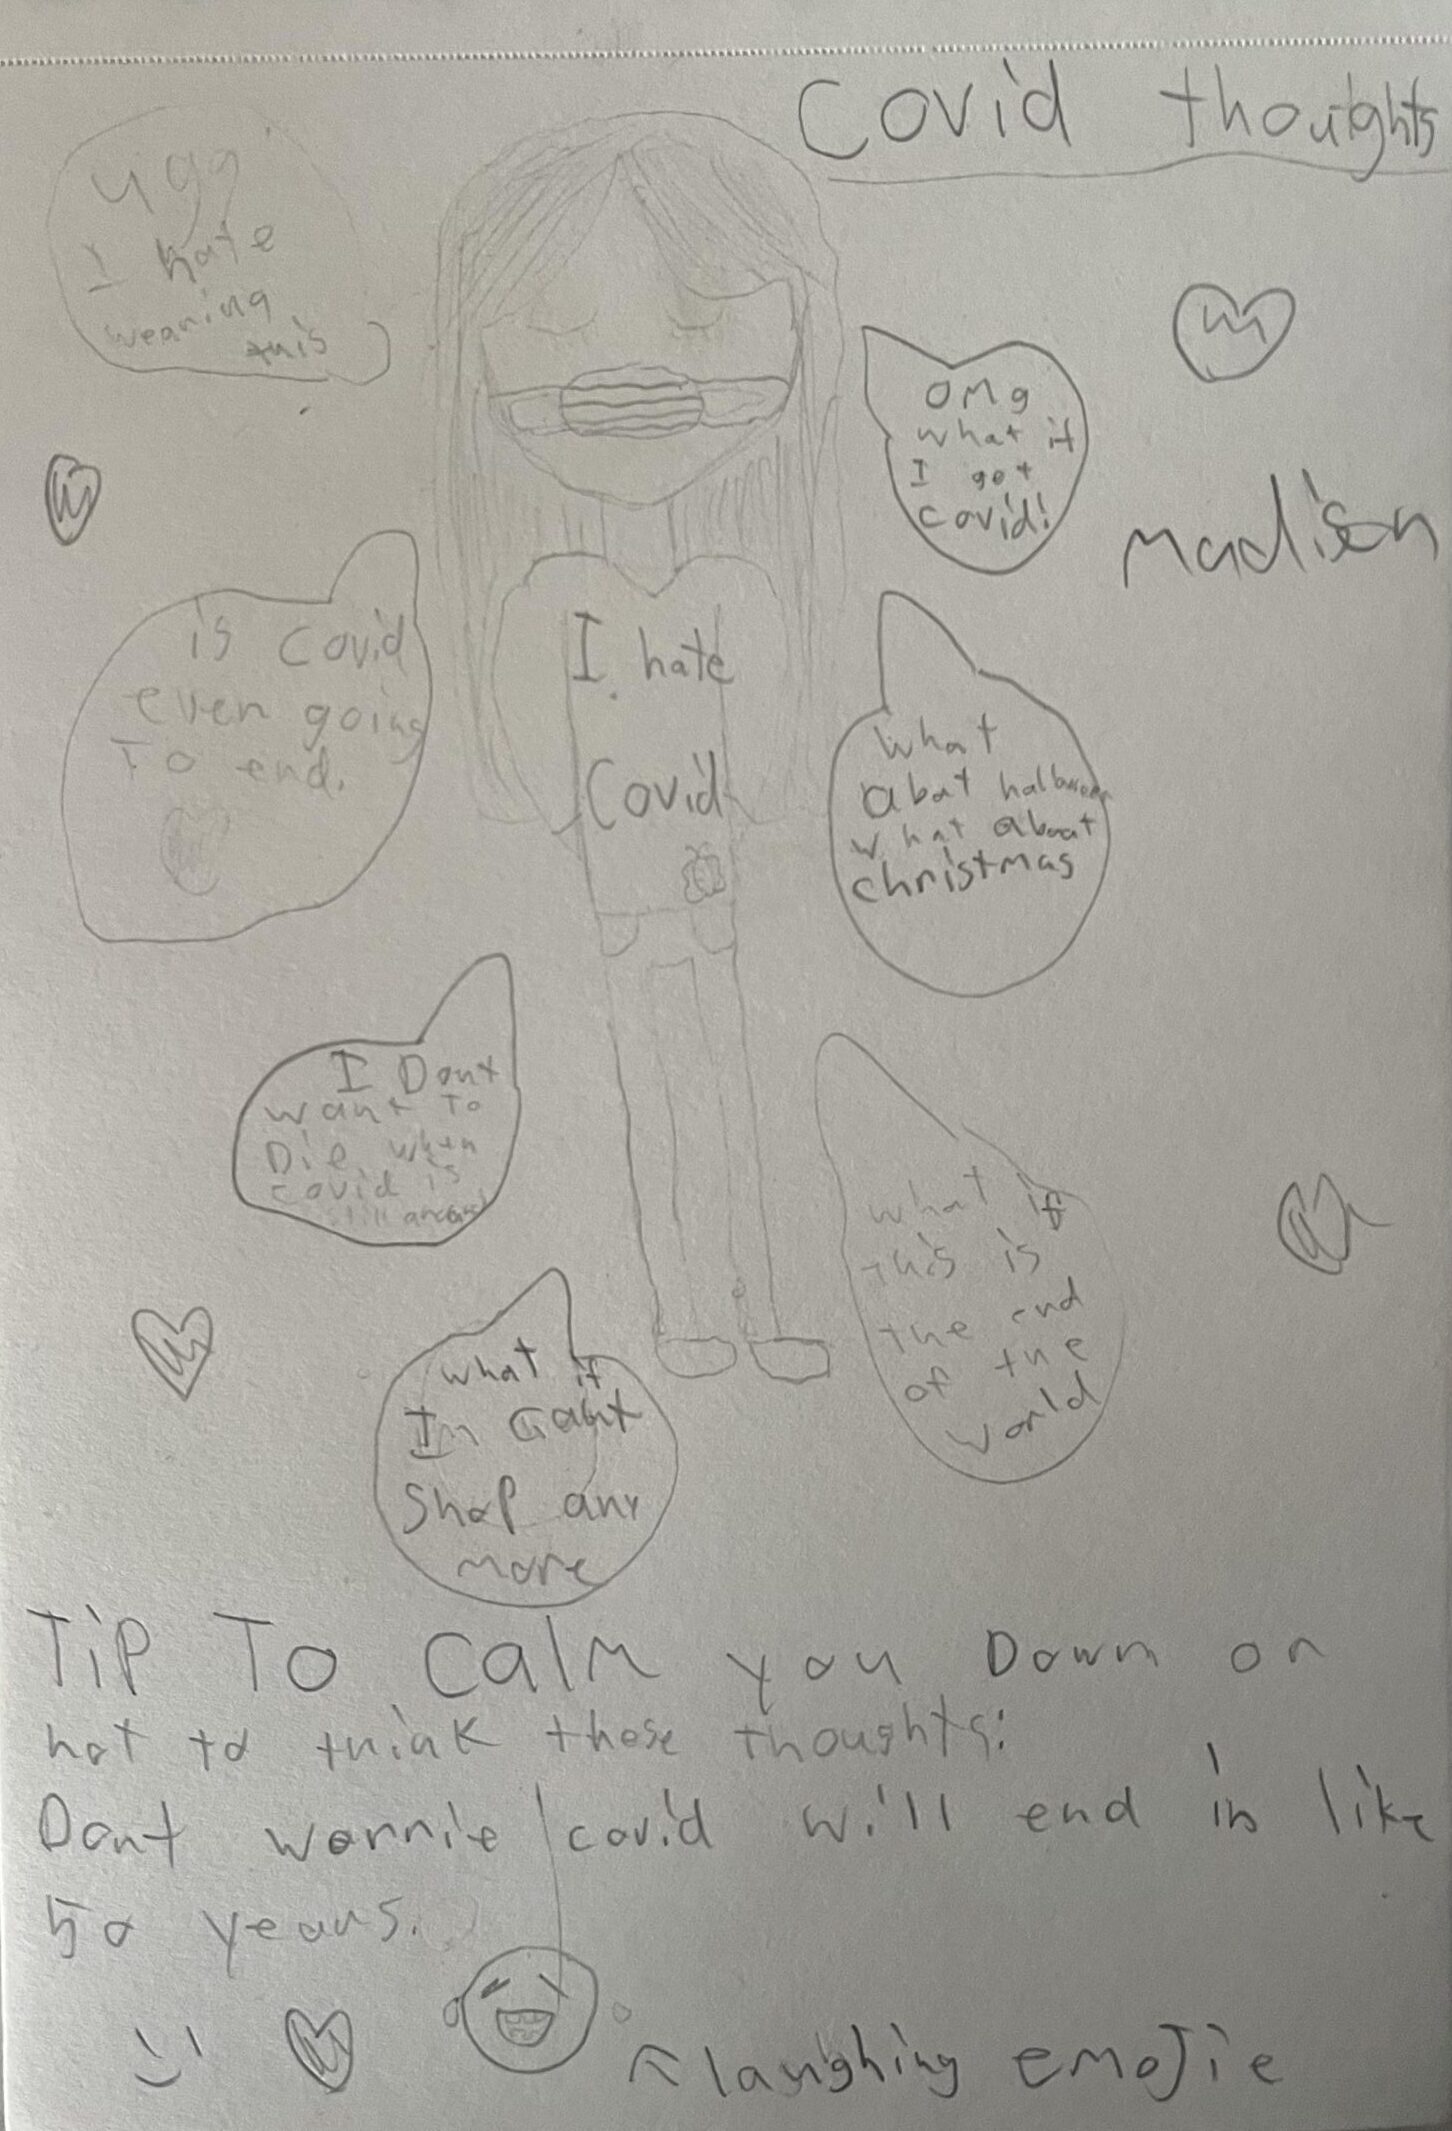 Covid thoughts
ugg
I hate
wearing
this
OMg
what if
I get
covid!
Madisen
is Covid
even going
To end.
I hate
Covid
what
abat halloween
what about
christmas
I Dont
want To
Die when
covid is
still around
what if
this is
the end
of the
world
what if
Im cant
Shop any
more
TiP To calm you Down or
not to think these thoughts:
Dont worrie covid will end in like
50 years.
laughing emojie